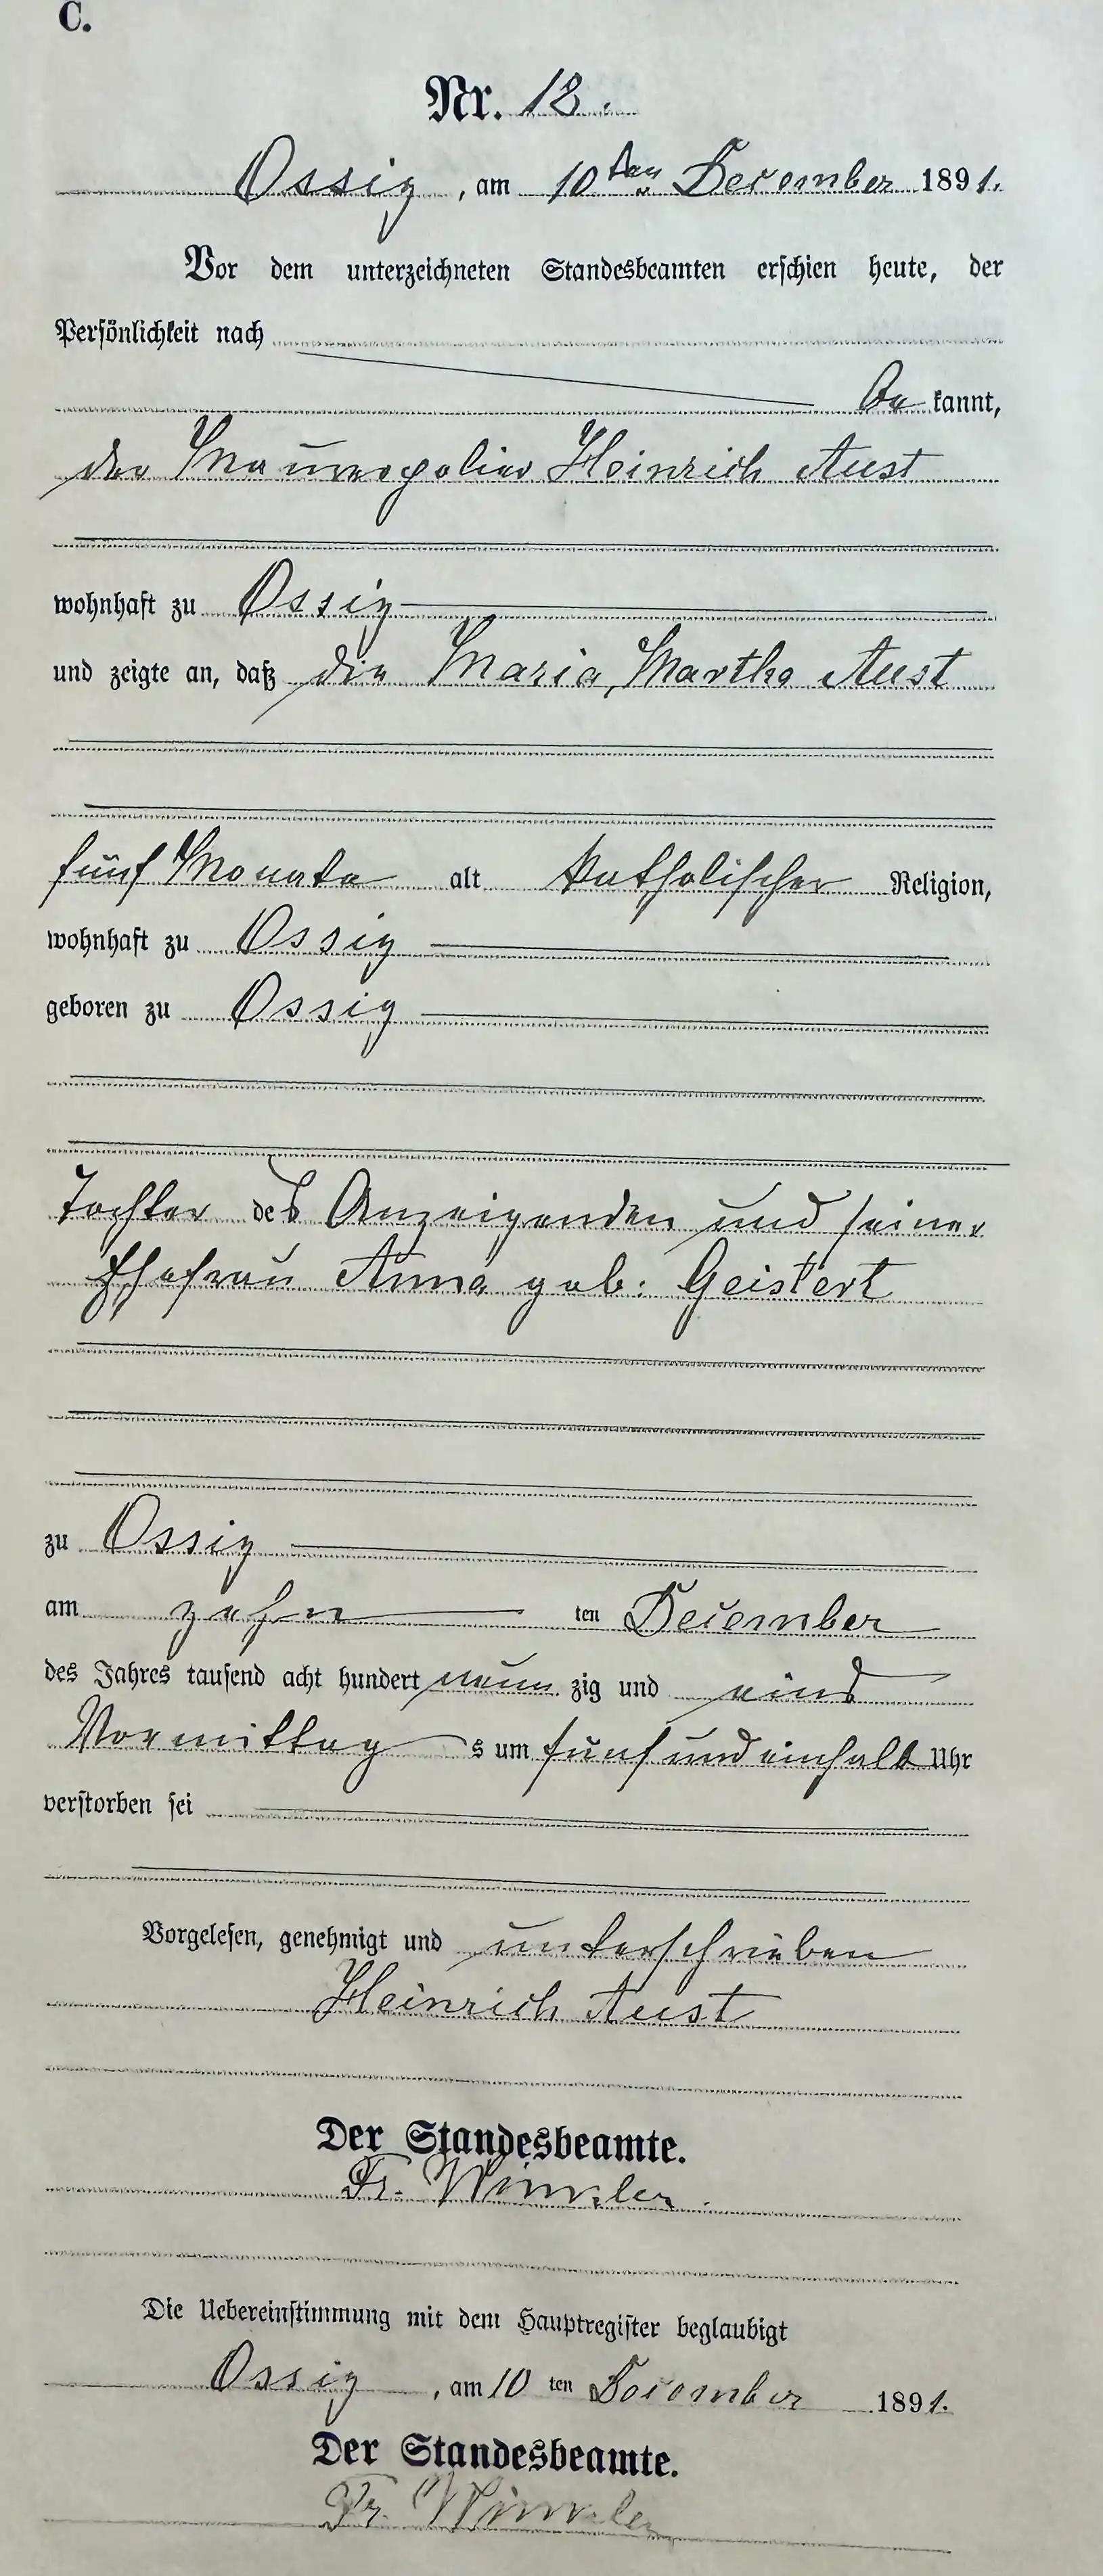 C.
Nr. 18.
Ossig, am 10ten December 1891.
Vor dem unterzeichneten Standesbeamten erschien heute, der
Persönlichkeit nach
be kannt,
der Maurerpolier Heinrich Aust
wohnhaft zu Ossig
und zeigte an, daß die Maria, Martha Aust
fünf Monate alt katholischer Religion,
wohnhaft zu Ossig
geboren zu Ossig
Tochter des Anzeigenden und seiner
Ehefrau Anna geb: Geistert
zu Ossig
am zehn ten December
des Jahres tausend acht hundert neun zig und eins
Vormittag s um fünf und einhalb Uhr
verstorben sei
Vorgelesen, genehmigt und unterschrieben
Heinrich Aust
Der Standesbeamte.
Fr. Winkler.
Die Uebereinstimmung mit dem Hauptregister beglaubigt
Ossig, am 10 ten December 1891.
Der Standesbeamte.
Fr. Winkler